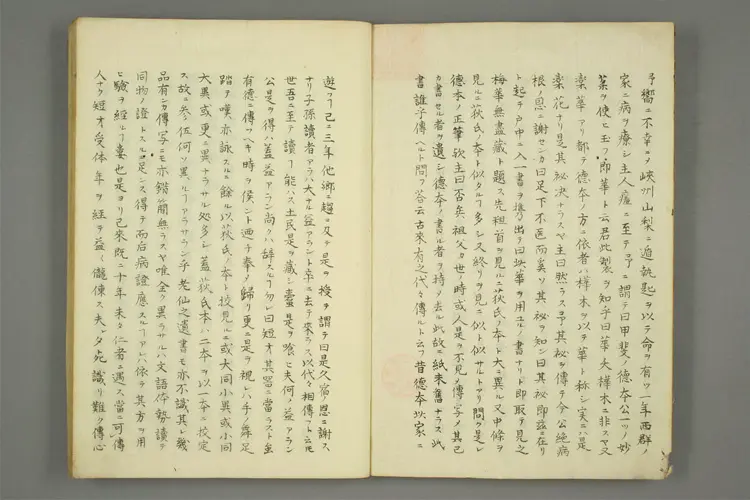 予嚮ニ不幸ニメ峡州山梨ニ遁執匙ヲ以テ命ヲ有ツ一年西群ノ
家ニ病ヲ療シ主人瘧ニ至テ予ニ謂テ曰甲斐ノ徳本公一ツノ妙
薬ヲ使ヒ玉フ即華ト云君此製ヲ知乎曰華ハ樺木ニ非スヤ又
楽華アリ都テ徳本ノ方ニ依者ハ樺木ヲ以テ華ト称シ実ニハ是
楽ノ花ナリ是其秘决ナラスヤ主曰然ラス予其秘ヲ傳テ今公絶病
根ノ恩ニ謝センカ曰足下不医而奚ソ其秘ヲ知ン曰其秘即茲ニ在リ
ト起テ戸中ニ入一書ヲ携ヘ出ヲ曰此華ヲ用ユルノ書ナリト即取テ見之
梅華無盡藏ト題ス先祖首ヲ見ルニ荻氏ノ本ト大ニ異ル又中條ヲ
見ルニ荻氏ノ本ト似タルフ多シ又終リヲ見ニ似ト似サルトアリ問ヲ是レ
徳本ノ正筆欤主曰否矣祖父カ世ノ時或人是ヲ不見ノ傳写メ其己
カ書セル者ヲ遺シ徳本ノ書ル者ヲ持ノ去ル此故ニ紙来旧ナラス此
書誰乎傳ヘルト問フ答云古来有之代々傳ルト云フ昔徳本此家ニ
遊フ已ニ三年他郷ニ趨ニ及テ是ヲ授ヲ謂テ曰是久宿ノ恩ニ謝ス
ナリ子孫讀者アラハ大ナル益アラント卒ニ去テ来ラス以代々相傳フト云氏
世吾ニ至テ讀フ能ハス土民是ヲ藏シ蠹是ヲ喰ヒ夫何ノ益アラン
公是ヲ得ハ蓋益アラン尚クハ辞スルフ勿レ曰短才其器ニ當ラスト虽
有徳ニ傳フヘキ時ヲ俟ント廼チ奉ノ歸リ更ニ是ヲ視レハ手ノ舞足
踏ヲ嘆亦詠スルニ餘ル以荻氏ノ本ト挍見ルニ或大同小異或小同
大異或更ニ異ナラサル処多シ蓋荻氏本ハ二本ヲ以一本ニ挍定
ス故ニ参伍何ソ異ルフアラサラン乎老仙之遺書モ亦不識其レ幾
品有ンカ傳写ニモ亦錯簡無ラスヤ唯全ク異ラサルハ文語体勢讀テ
同物ノ證トスルニ足シス得テ而后病證應スルフアレハ依テ其方ヲ用
ヒ驗ヲ經ルフ婁也是ヨリ已来既ニ十年未タ仁者ニ遇ス當ニ可傳
人ナク短才受体年ヲ経ヲ益〻儱倲ス夫レ夕死識リ難ク傳心